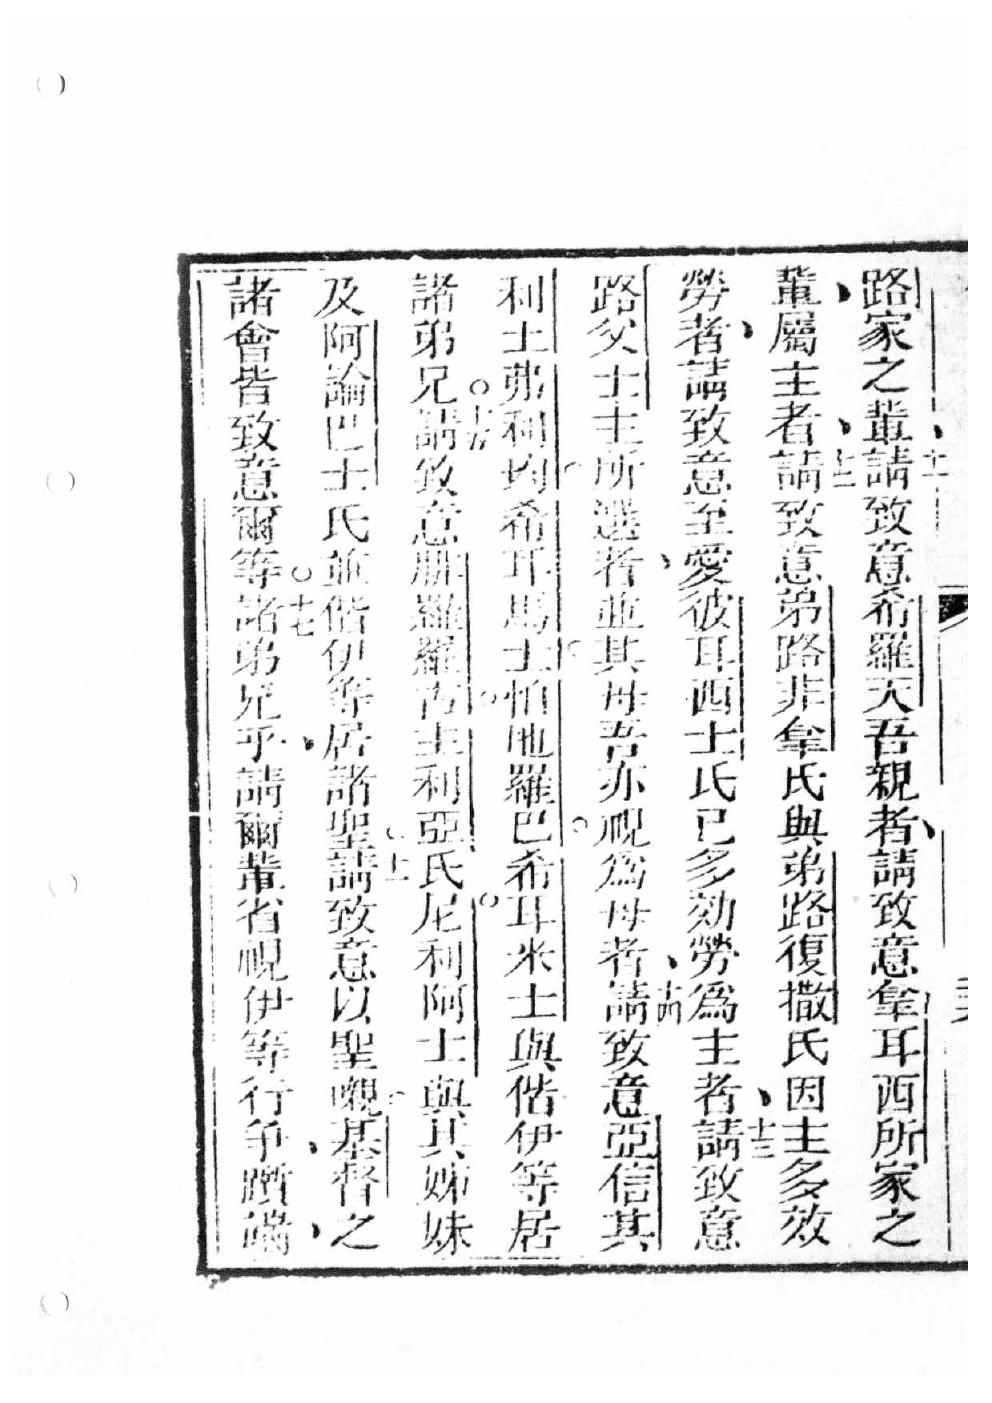 路家之輩請致意希羅天吾親者請致意拿耳西所家之
十一
輩屬主者請致意弟路非拿氏與弟路復撒氏因主多效
十二
勞者請致意至愛彼耳西士氏已多効勞爲主者請致意
十三
路父士主所選者並其母吾亦視爲母者請致意亞信其
十四
利士弗利均希耳馬士怕地羅巴希耳米士與偕伊等居
諸弟兄請致意腓羅羅古主利亞氏尼利阿士與其姊妹
十五
及阿論巴士氏並偕伊等居諸聖請致意以聖嚫基督之
諸會皆致意爾等諸弟兄乎請爾輩省視伊等行爭躓端
十七